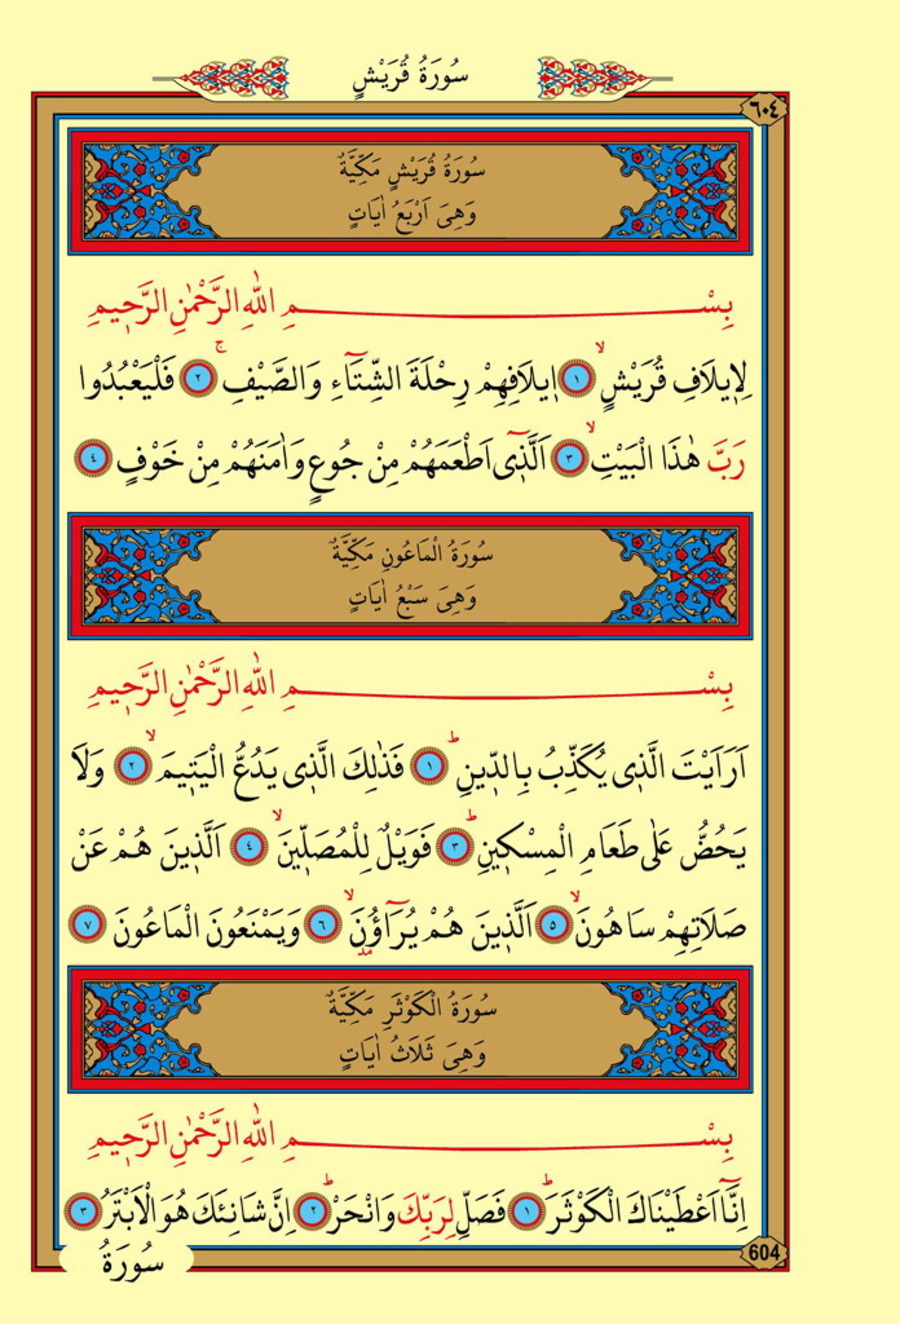 سُورَةُ قُرَيْشٍ
٦٠٤
سُورَةُ قُرَيْشٍ مَكِّيَّةٌ
وَهِىَ اَرْبَعُ اٰيَاتٍ
بِسْمِ اللّٰهِ الرَّحْمٰنِ الرَّحٖيمِ
لِاٖيلَافِ قُرَيْشٍۙ ١ اٖيلَافِهِمْ رِحْلَةَ الشِّتَٓاءِ وَالصَّيْفِۚ ٢ فَلْيَعْبُدُوا
رَبَّ هٰذَا الْبَيْتِۙ ٣ اَلَّذٖٓى اَطْعَمَهُمْ مِنْ جُوعٍ وَاٰمَنَهُمْ مِنْ خَوْفٍ ٤
سُورَةُ الْمَاعُونِ مَكِّيَّةٌ
وَهِىَ سَبْعُ اٰيَاتٍ
بِسْمِ اللّٰهِ الرَّحْمٰنِ الرَّحٖيمِ
اَرَاَيْتَ الَّذٖى يُكَذِّبُ بِالدّٖينِؕ ١ فَذٰلِكَ الَّذٖى يَدُعُّ الْيَتٖيمَۙ ٢ وَلَا
يَحُضُّ عَلٰى طَعَامِ الْمِسْكٖينِؕ ٣ فَوَيْلٌ لِلْمُصَلّٖينَۙ ٤ اَلَّذٖينَ هُمْ عَنْ
صَلَاتِهِمْ سَاهُونَۙ ٥ اَلَّذٖينَ هُمْ يُرَٓاؤُ۫نَۙ ٦ وَيَمْنَعُونَ الْمَاعُونَ ٧
سُورَةُ الْكَوْثَرِ مَكِّيَّةٌ
وَهِىَ ثَلَاثُ اٰيَاتٍ
بِسْمِ اللّٰهِ الرَّحْمٰنِ الرَّحٖيمِ
اِنَّٓا اَعْطَيْنَاكَ الْكَوْثَرَؕ ١ فَصَلِّ لِرَبِّكَ وَانْحَرْؕ ٢ اِنَّ شَانِئَكَ هُوَ الْاَبْتَرُ ٣
604
سُورَةُ